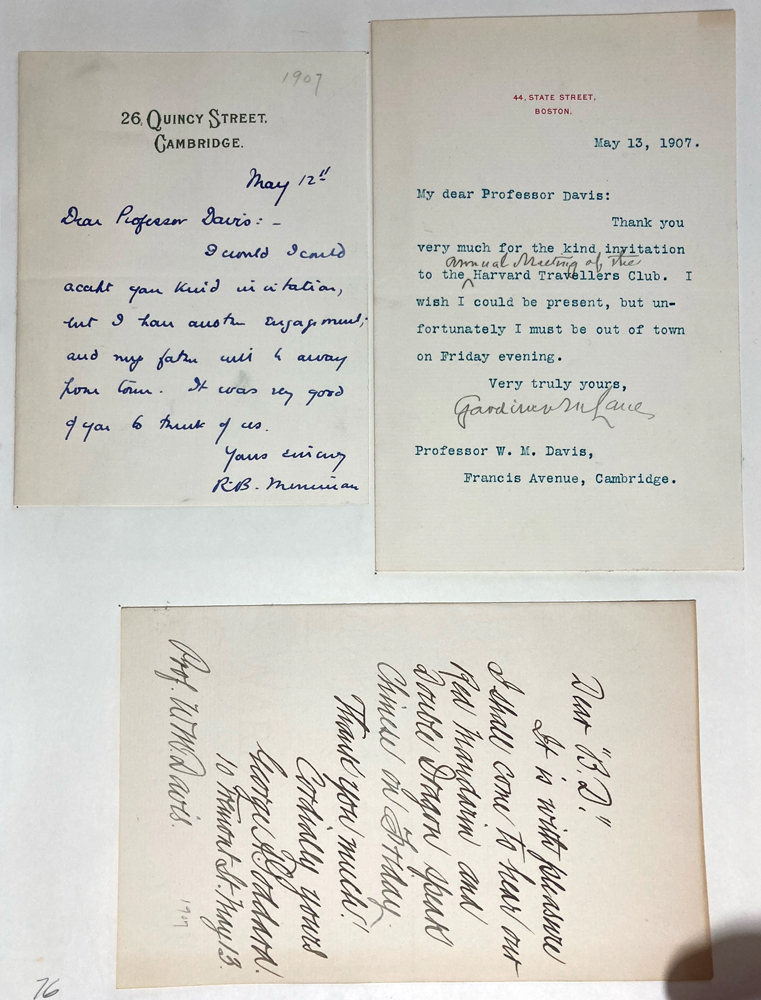 1907
26, QUINCY STREET,
CAMBRIDGE.
May 12th
Dear Professor Davis: -
I would I could
accept your kind invitation,
but I have another Engagement;
and my father will be away
from town. It was very good
of you to think of us.
Yours sincerely
R.B. Merriman
44, STATE STREET,
BOSTON.
May 13, 1907.
My dear Professor Davis:
Thank you
very much for the kind invitation
annual Meeting of the
to the Harvard Travellers Club. I
wish I could be present, but un-
fortunately I must be out of town
on Friday evening.
Very truly yours,
Gardiner M Lane
Professor W. M. Davis,
Francis Avenue, Cambridge.
Dear "B.D."
It is with pleasure
I shall come to hear our
Red Mandarin and
Double Dragon speak
Chinese on Friday.
Thank you much!
Cordially yours
George A Goddard.
10 Tremont St. May 13.
Prof. W.M. Davis.
1907
76